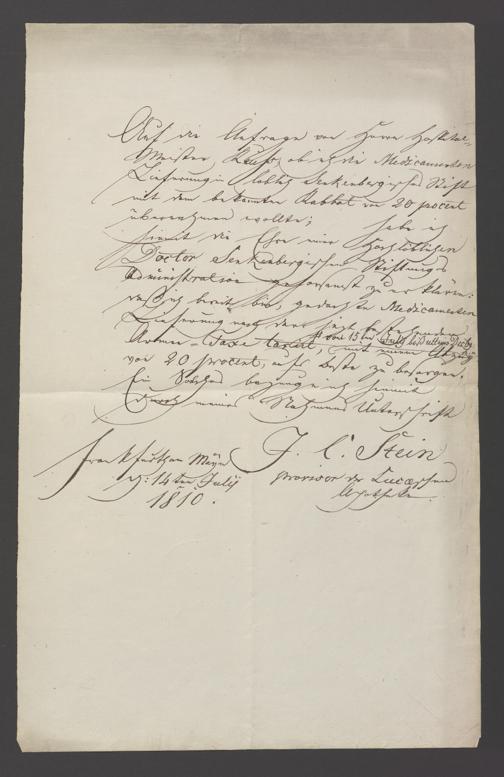 Auf die Anfrage von Herrn Hospital-
Meister, ob ich die Medicamenten
Lieferung in löbl. Senkenbergisches Stift
mit dem bekannten Rabbat von 20 procent
übernehmen wollte; habe ich
hiemit die Ehre einer Hochlöblichen
Doctor Senkenbergischen Stiftungs
Administration gehorsamst zu erklären:
daß ich bereit bin, gedachte Medicamenten
Lieferung nach der jezt bestehenden
Armen-Taxe taxirt, mit einem Abzug
von 20 procent, aufs beste zu besorgen.
Ein Solches bezeuge ich hiemit
Durch meines Nahmens Unterschrift
Frankfurth am Mayn
d: 14ten July
1810.
J. C. Stein
provisor der
Apotheke.